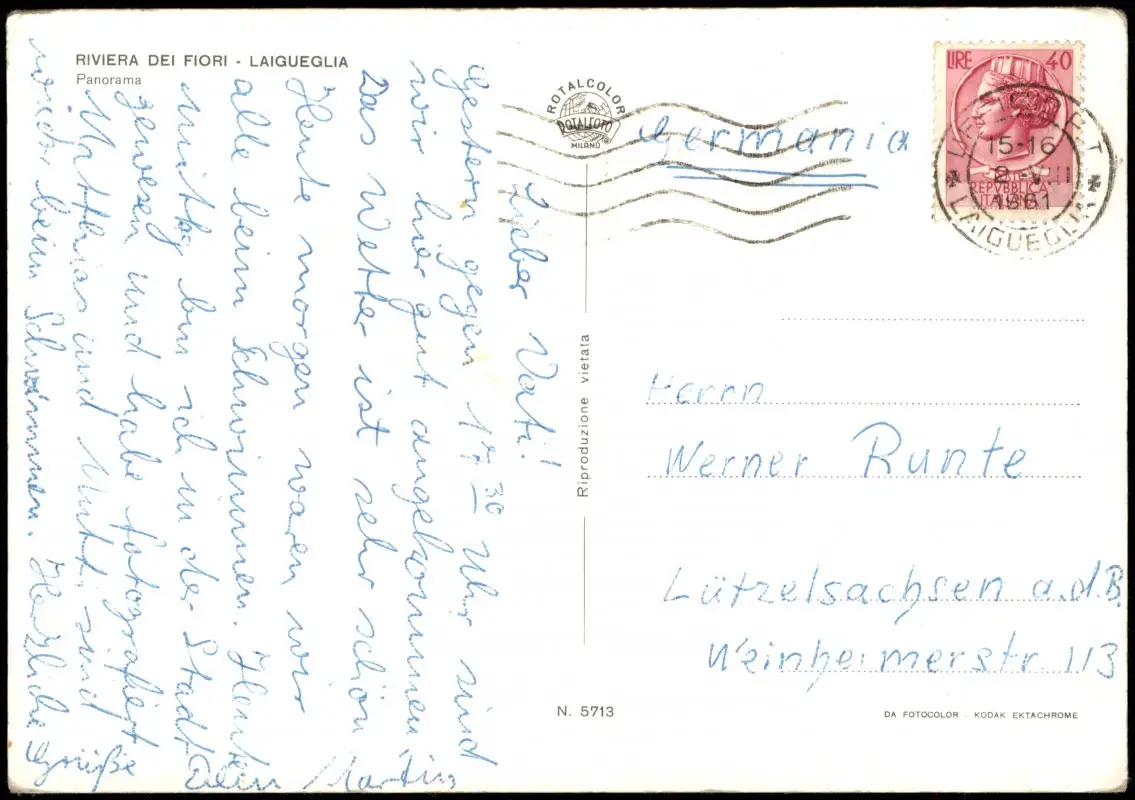 RIVIERA DEI FIORI - LAIGUEGLIA
Panorama
ROTALCOLOR
ROTALFOTO
MILANO
Germania
LIRE 40
REPVBBLICA
ITALIANA
15-16
1961
LAIGUEGLIA
Lieber Vati!
Gestern gegen 17 30 Uhr sind
wir hier gut angekommen.
Das Wetter ist sehr schön
Heute morgen waren wir
alle beim Schwimmen. Heute
mittag bin ich in der Stadt
gewesen und habe fotografiert
Matthias und Mutti sind
wieder beim Schwimmen. Herzliche
Grüße
Dein Martin
Riproduzione vietata
Herrn
Werner Runte
Lützelsachsen a.d.B.
Weinheimerstr. 113
N. 5713
DA FOTOCOLOR - KODAK EKTACHROME